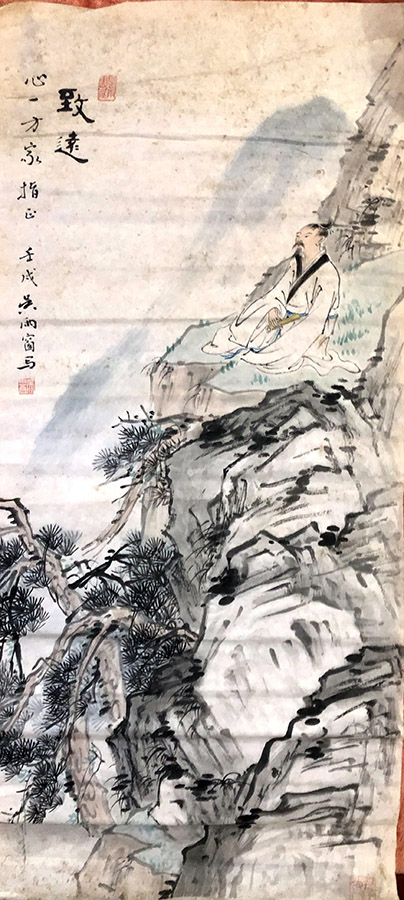 致遠
心一方家指正 壬戌吴雨窗写